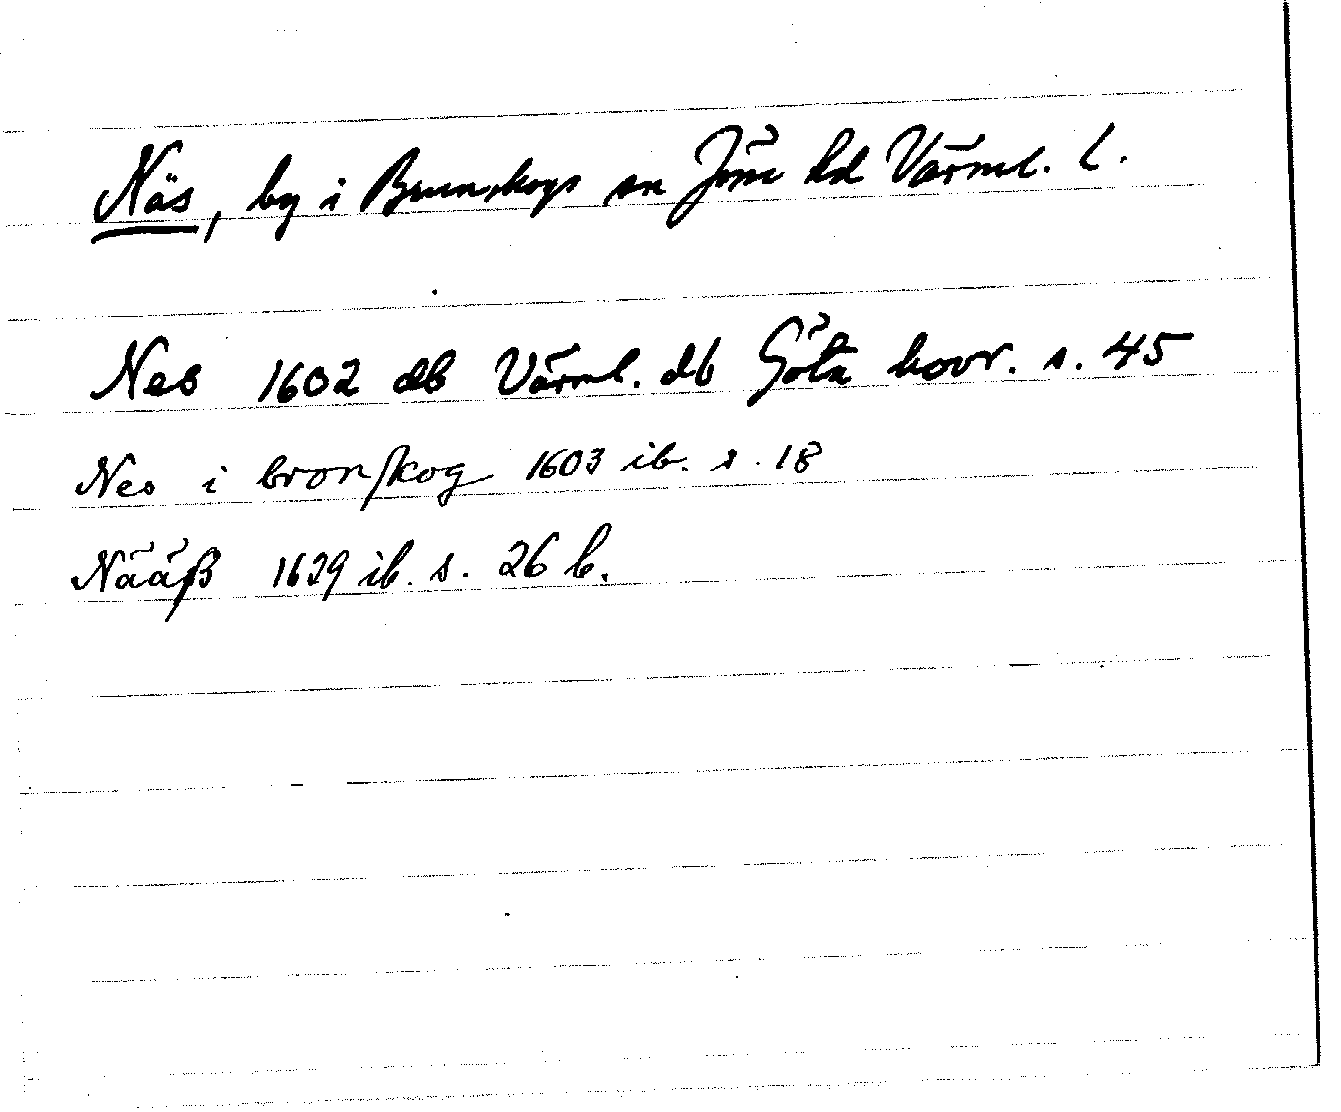 Näs, by i Brunskogs sn Jösse hd Värml. l.
Nes 1602 db Värml. db Göta hovr. s. 45
Nes i bronſkog 1603 ib. s. 18
Nääß 1629 ib. s. 26 b.